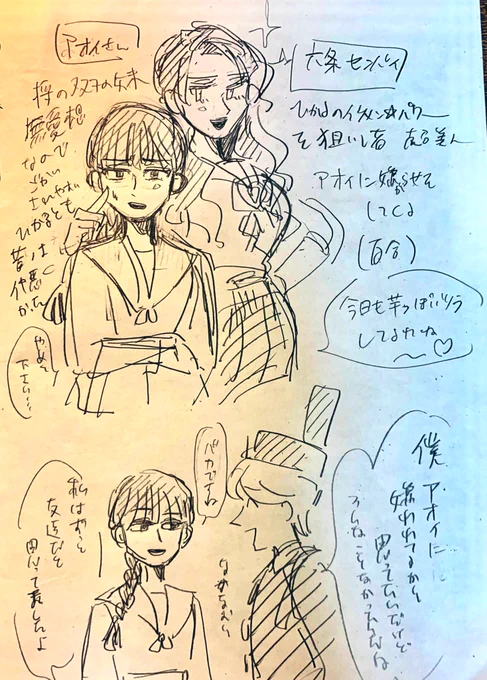 六条センパイ
ひかるのイケメンパワー
を狙いし者
アオイに嫌がらせを
してくる
(百合)
今日も芋っぽいツラ
してるわね
～♡
アオイさん
将の双子の妹
無愛想
なので
ひかるとも
昔は
仲悪く
やめて
下さい…
僕アオイに
嫌われてるかと
思ってたいたけど
そんなことなかったんだね
バカですね
私はずっと
友達だと
思って来ましたよ